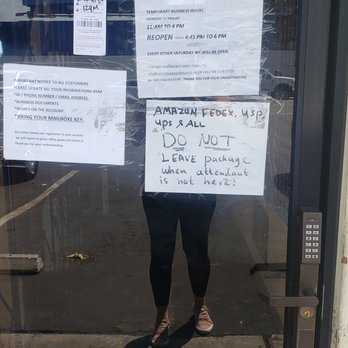 12PM
TEMPORARY BUSINESS HOURS
MONDAY TO FRIDAY
11:AM TO 4 PM
REOPEN FROM 4:45 PM TO 6 PM
EVERY OTHER SATURDAY WE WILL BE OPEN
THANK YOU FOR YOUR UNDERSTANDING
IMPORTANT NOTICE TO ALL CUSTOMERS
PLEASE UPDATE ALL YOUR INFORMATIONS ASAP
*ID / PHONE NUMBER / EMAIL ADDRESS,
*BUSINESS DOCUMENTS
*NAMES ON THE ACCOUNT
*BRING YOUR MAILBOXE KEY.
Thank you for your understanding
AMAZON FEDEX, USP,
UPS & ALL
DO NOT
LEAVE package
when attendant
is not here!